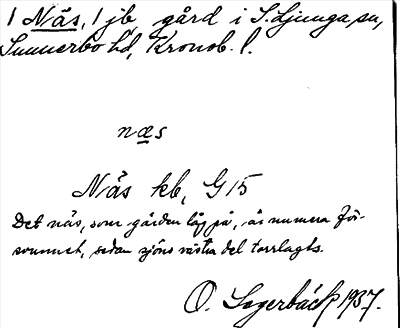 1 Näs, 1 jb gård i S. Ljunga sn,
Sunnerbo hd, Kronob. l.
næs
Näs kb, G 15
Det näs, som gården låg på, är numera för-
svunnet, sedan sjöns västra del torrlagts.
O. Lagerbäck 1937.